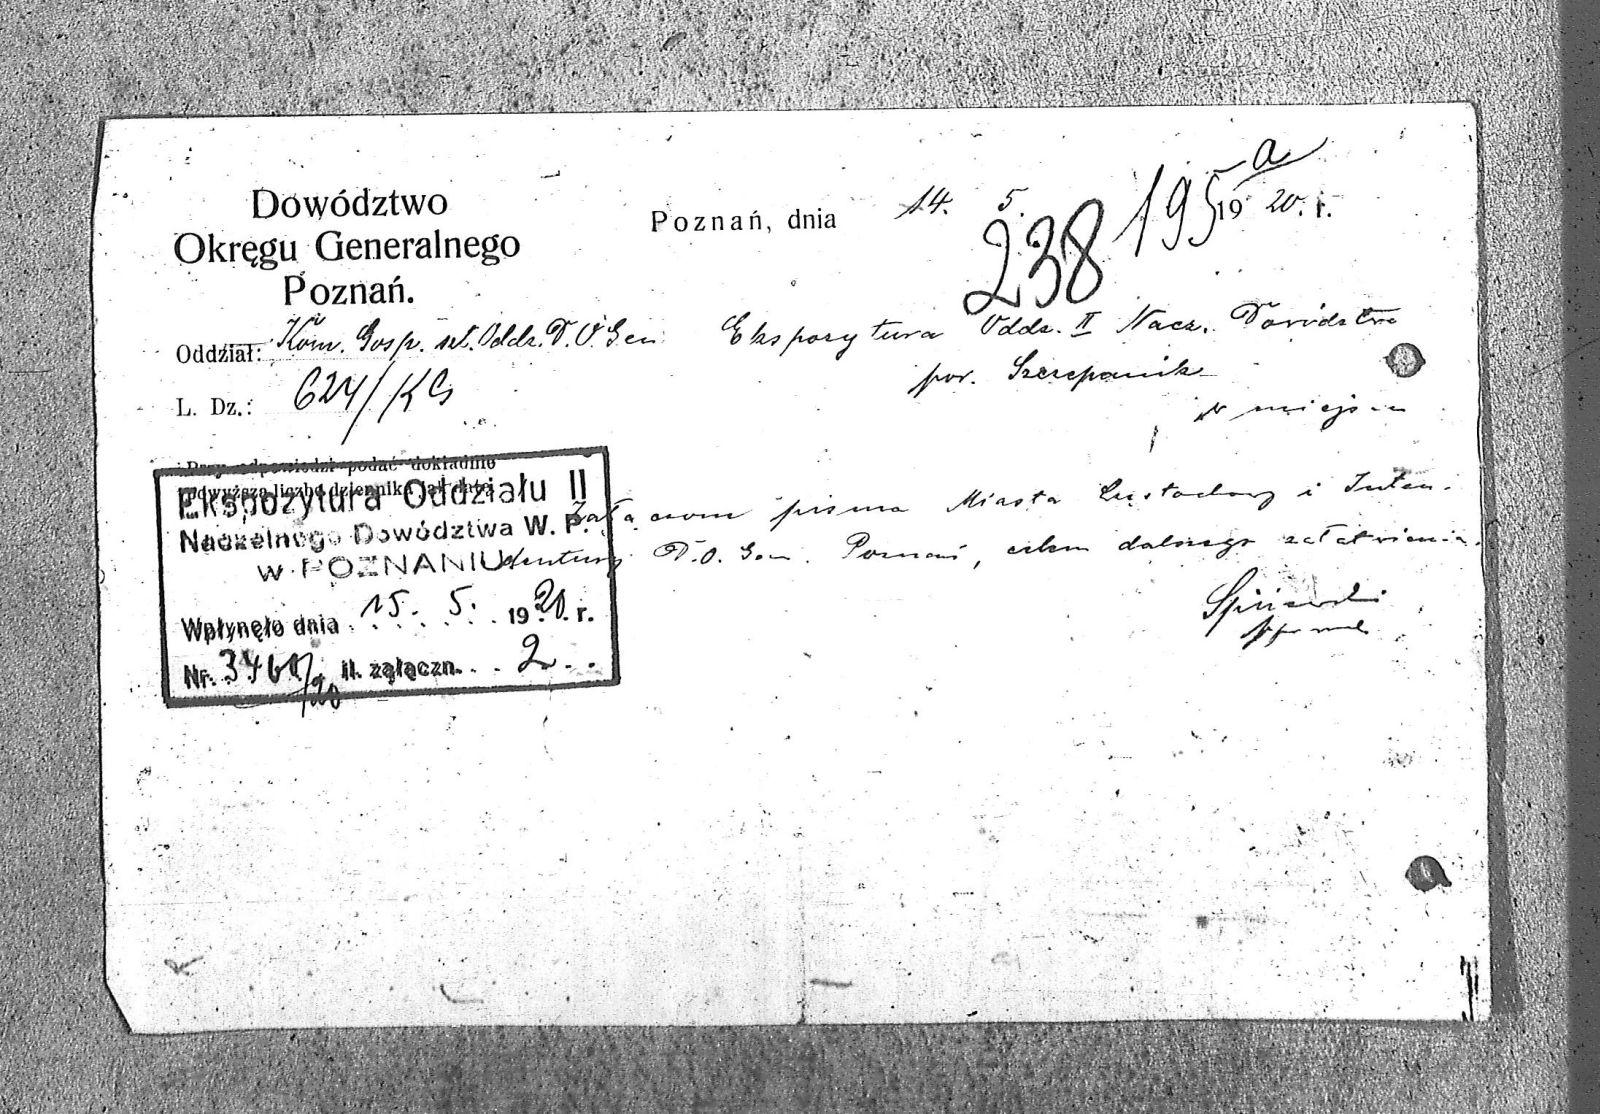 195 a
Dowództwo
Okręgu Generalnego
Poznań.
Poznań, dnia 14. 5. 1920. r.
238
Oddział: Kom. Gosp. szt. Oddz. D.O.Gen
L. Dz.: 624/KG
Ekspozytura Oddz. II Nacz. Dowództwa
por. Szczepanik
w miejscu
Przy odpowiedzi podać dokładnie
powyższą liczbę dziennika jak datę.
Ekspozytura Oddziału II
Naczelnego Dowództwa W. P.
w POZNANIU
Wpłynęło dnia 15. 5. 1920. r.
Nr. 3460/20 il. załączn. 2
pisma Miasta i Inten-
dentury D.O.Gen. Poznań, celem dalszego załatwienia.